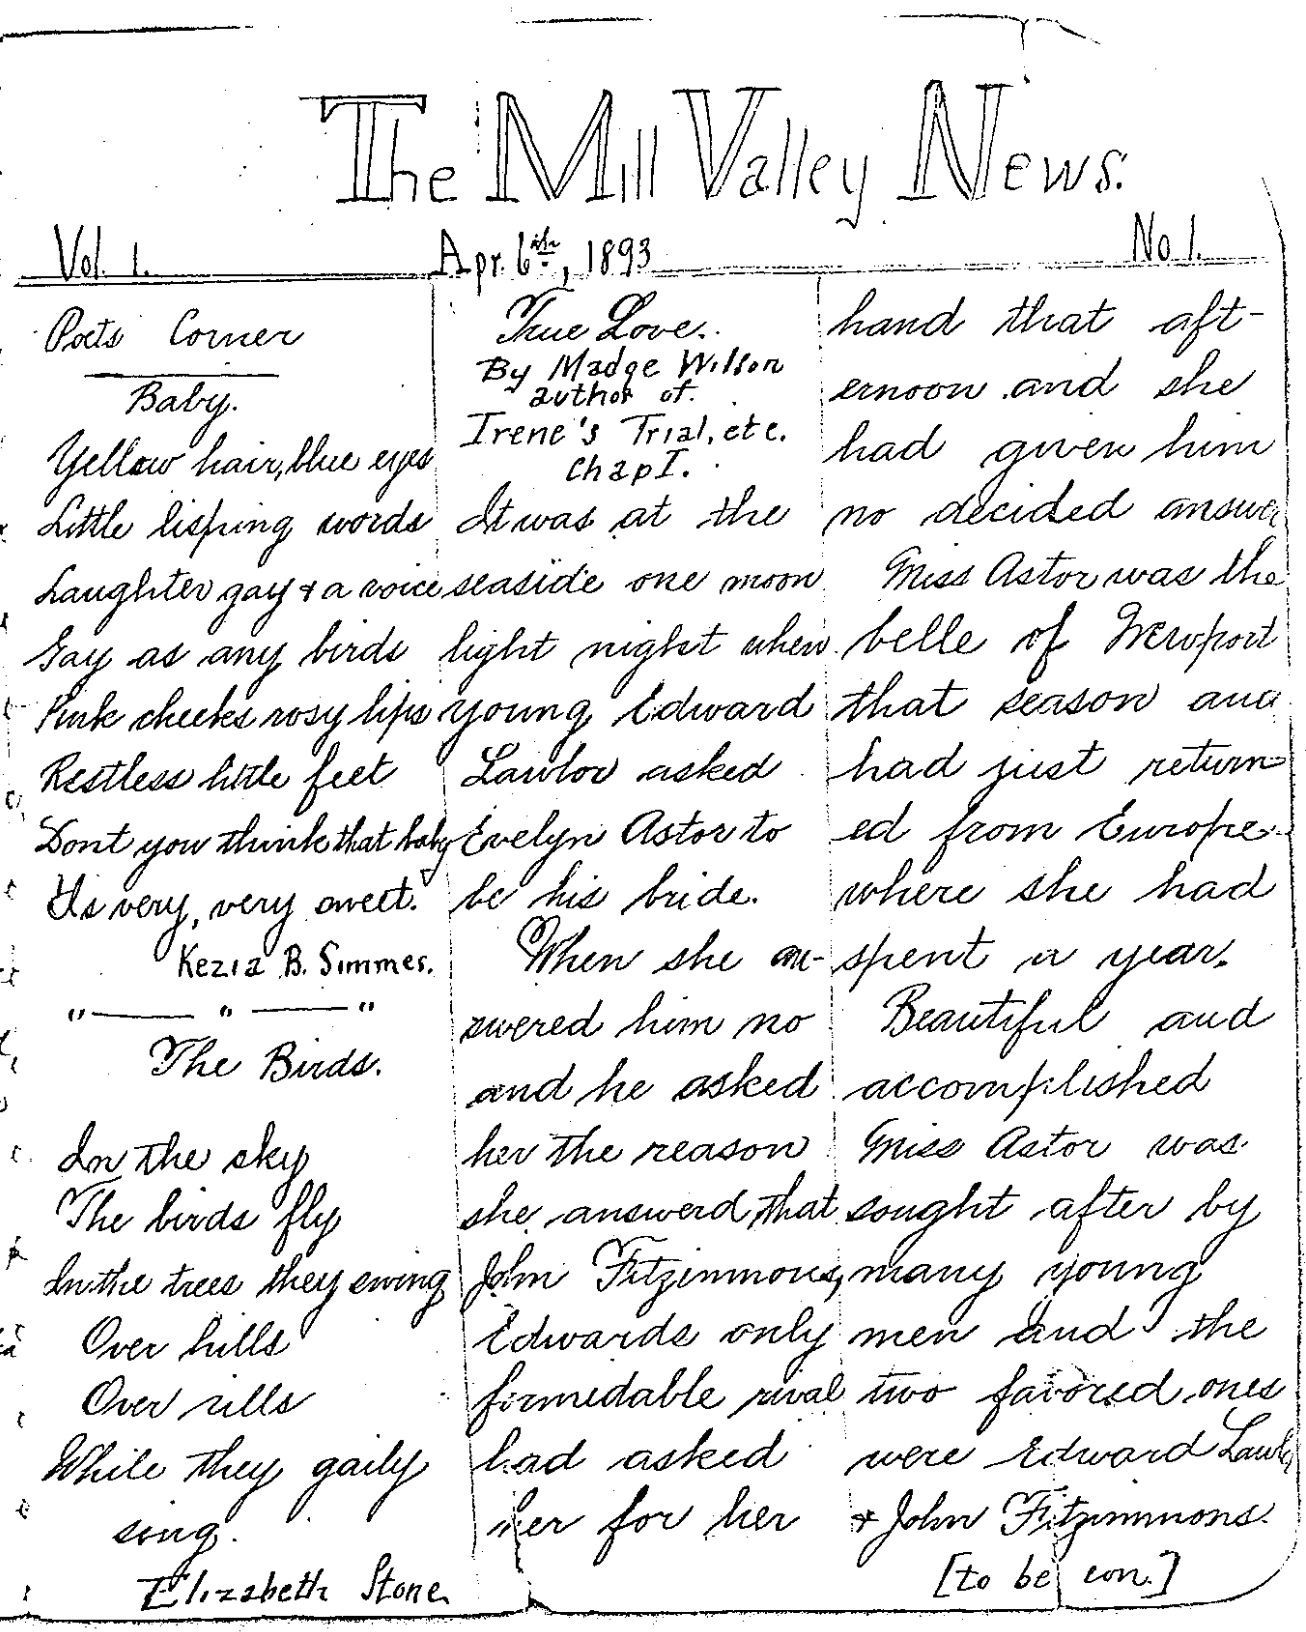 The Mill Valley News.
Vol. 1.
Apr. 6th, 1893
No 1.
Poets Corner
Baby.
Yellow hair, blue eyes
Little lisping words
Laughter gay & a voice
Gay as any birds
Pink cheeks rosy lips
Restless little feet
Dont you think that baby
Is very, very sweet.
Kezia B. Simmes.
" — " — "
The Birds.
In the sky
The birds fly
In the trees they swing
Over hills
Over rills
While they gaily
song.
Elizabeth Stone
True Love.
By Madge Wilson
author of
Irene's Trial, etc.
Chap I.
It was at the
seaside one moon
light night when
young Edward
Lawlor asked
Evelyn Astor to
be his bride.
When she an-
swered him no
and he asked
her the reason
she answerd that
John Fitzimmons,
Edwards only
formedable rival
had asked
her for her
hand that aft-
ernoon and she
had given him
no decided answer
Miss Astor was the
belle of Newport
that season and
had just return
ed from Europe
where she had
spent a year.
Beautiful and
accomplished
Miss Astor was
sought after by
many young
men and the
two favored ones
were Edward Lawlor
& John Fitzimmons.
[to be con.]